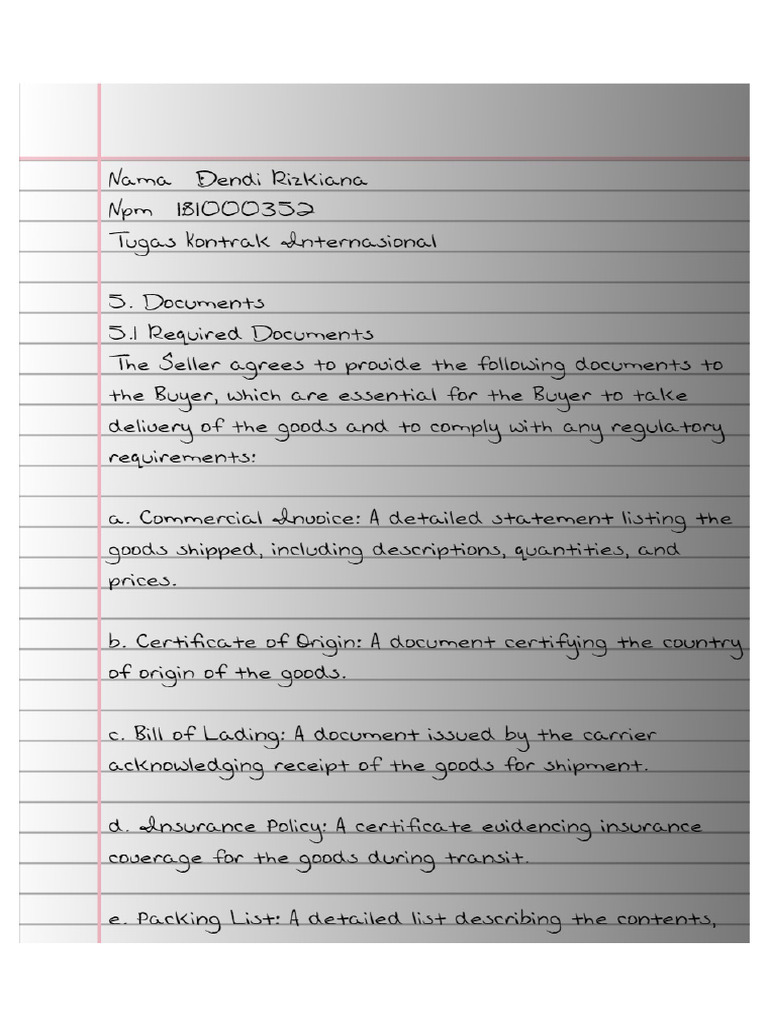 Nama Dendi Rizkiana
Npm 181000352
Tugas Kontrak Internasional
5. Documents
5.1 Required Documents
The Seller agrees to provide the following documents to
the Buyer, which are essential for the Buyer to take
delivery of the goods and to comply with any regulatory
requirements:
a. Commercial Invoice: A detailed statement listing the
goods shipped, including descriptions, quantities, and
prices.
b. Certificate of Origin: A document certifying the country
of origin of the goods.
c. Bill of Lading: A document issued by the carrier
acknowledging receipt of the goods for shipment.
d. Insurance Policy: A certificate evidencing insurance
coverage for the goods during transit.
e. Packing List: A detailed list describing the contents,